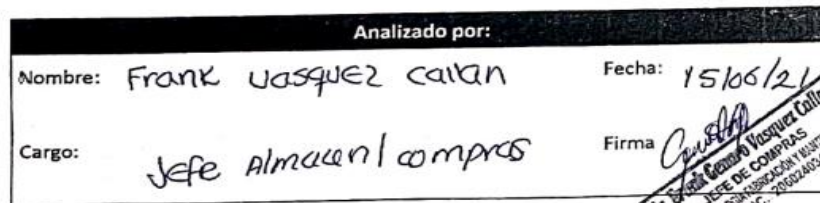 Analizado por:
Nombre: Frank Vasquez Callan Fecha: 15/06/21
Cargo: Jefe Almacen/compras Firma
Frank Genaro Vasquez Calla
JEFE DE COMPRAS